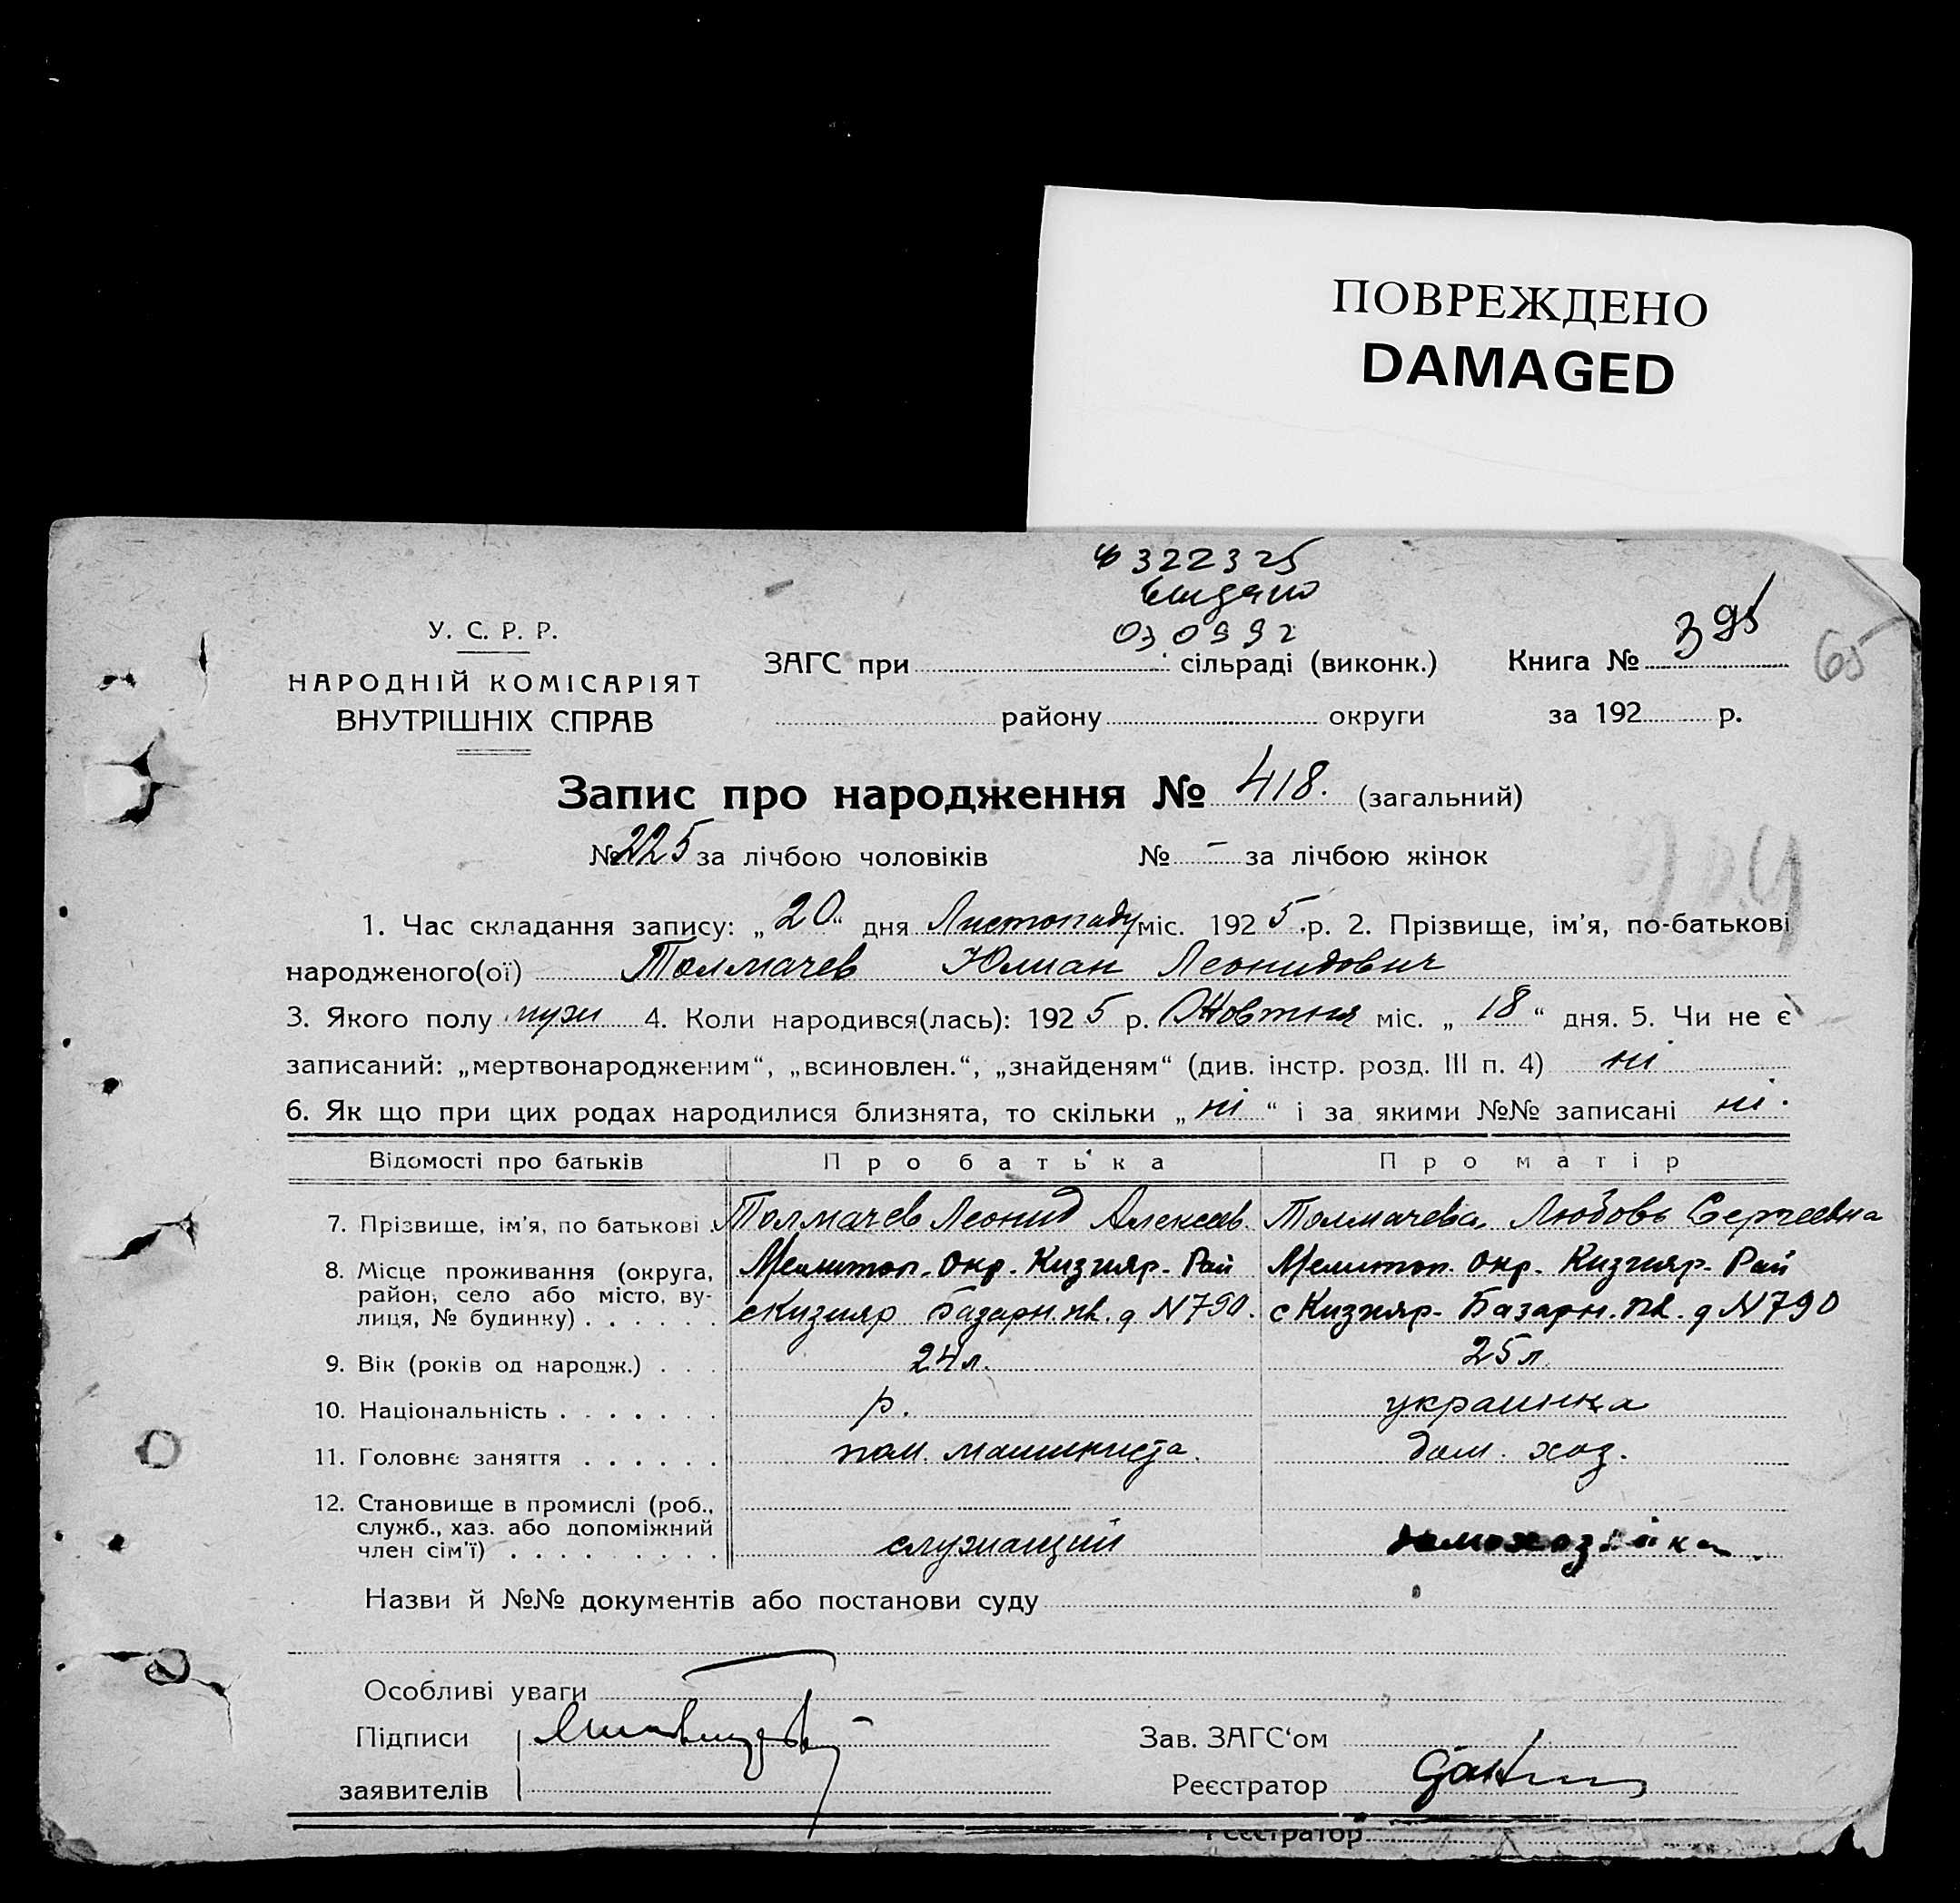 ПОВРЕЖДЕНО
DAMAGED
322325
видано
030992
У. С. Р. Р.
НАРОДНІЙ КОМІСАРІЯТ
ВНУТРІШНІХ СПРАВ
ЗАГС при сільраді (виконк.)
району округи
Книга № 395
65
за 192 р.
Запис про народження № 418. (загальний)
№ 225 за лічбою чоловіків № - за лічбою жінок
1. Час складання запису: „20“ дня Листопаду міс. 1925 р. 2. Прізвище, ім'я, по-батькові
народженого(ої) Толмачев Юлиан Леонидович
3. Якого полу муж 4. Коли народився(лась): 1925 р. Жовтня міс. „18“ дня. 5. Чи не є
записаний: „мертвонародженим“, „всиновлен.“, „знайденям“ (див. інстр. розд. III п. 4) ні
6. Як що при цих родах народилися близнята, то скільки „ні“ і за якими №№ записані ні.
Відомості про батьків Про батька Про матір
7. Прізвище, ім'я, по батькові Толмачев Леонид Алексеев. Толмачева Любовь Сергеевна
8. Місце проживання (округа, район, село або місто, вулиця, № будинку) Мелитоп. Окр. Кизияр. Рай Мелитоп. Окр. Кизияр. Рай
с Кизияр Базарн. пл. д N790. с Кизияр. Базарн. пл. д N790
9. Вік (років од народж.) 24 л. 25 л
10. Національність р. украинка
11. Головнє заняття пом. машиниста. дом. хоз.
12. Становище в промислі (роб., служб., хаз. або допоміжний член сім'ї) служащий домохозяйка.
Назви й №№ документів або постанови суду
Особливі уваги
Підписи
заявителів
Зав. ЗАГС'ом
Реєстратор
Реєстратор